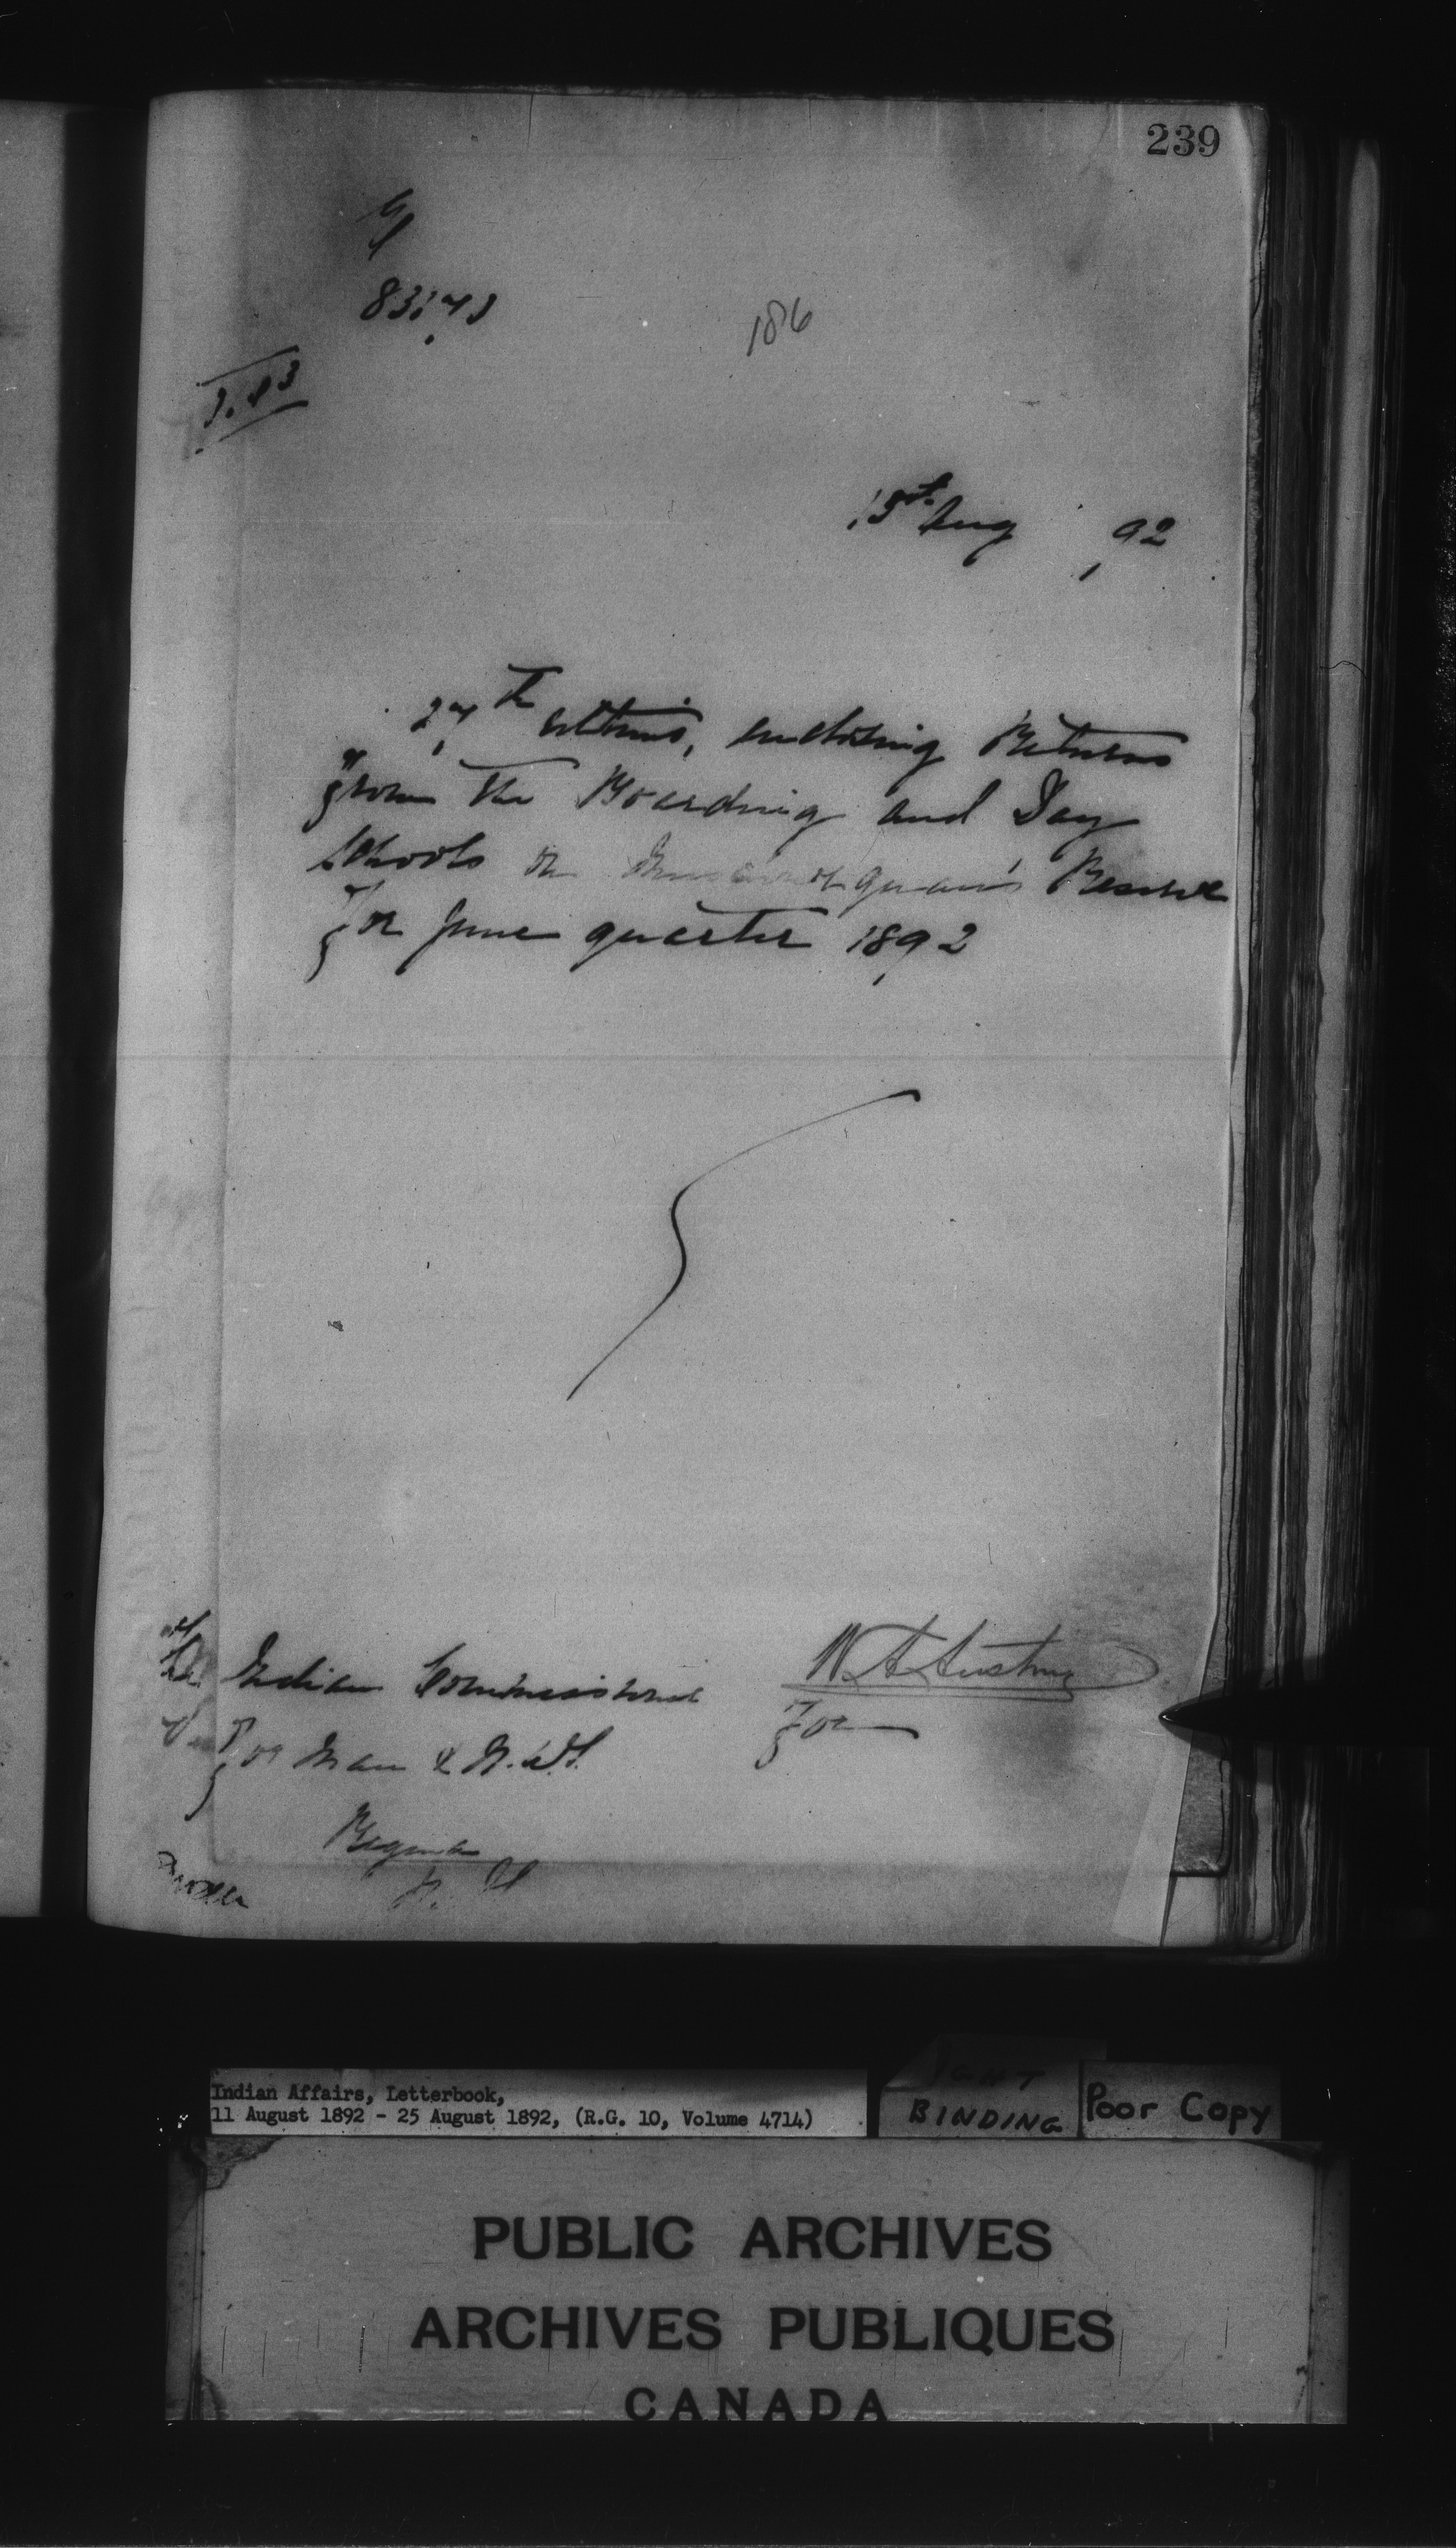 239
186
15th Aug , 92
27th ultimo, enclosing Returns
from the Boarding and Day
Schools on Reserve
for June quarter 1892
The Indian Commissioner
for Man & N.W.T.
Regina
W. A. Austin
For
Indian Affairs, Letterbook,
11 August 1892 - 25 August 1892, (R.G. 10, Volume 4714)
BINDING
Poor Copy
PUBLIC ARCHIVES
ARCHIVES PUBLIQUES
CANADA